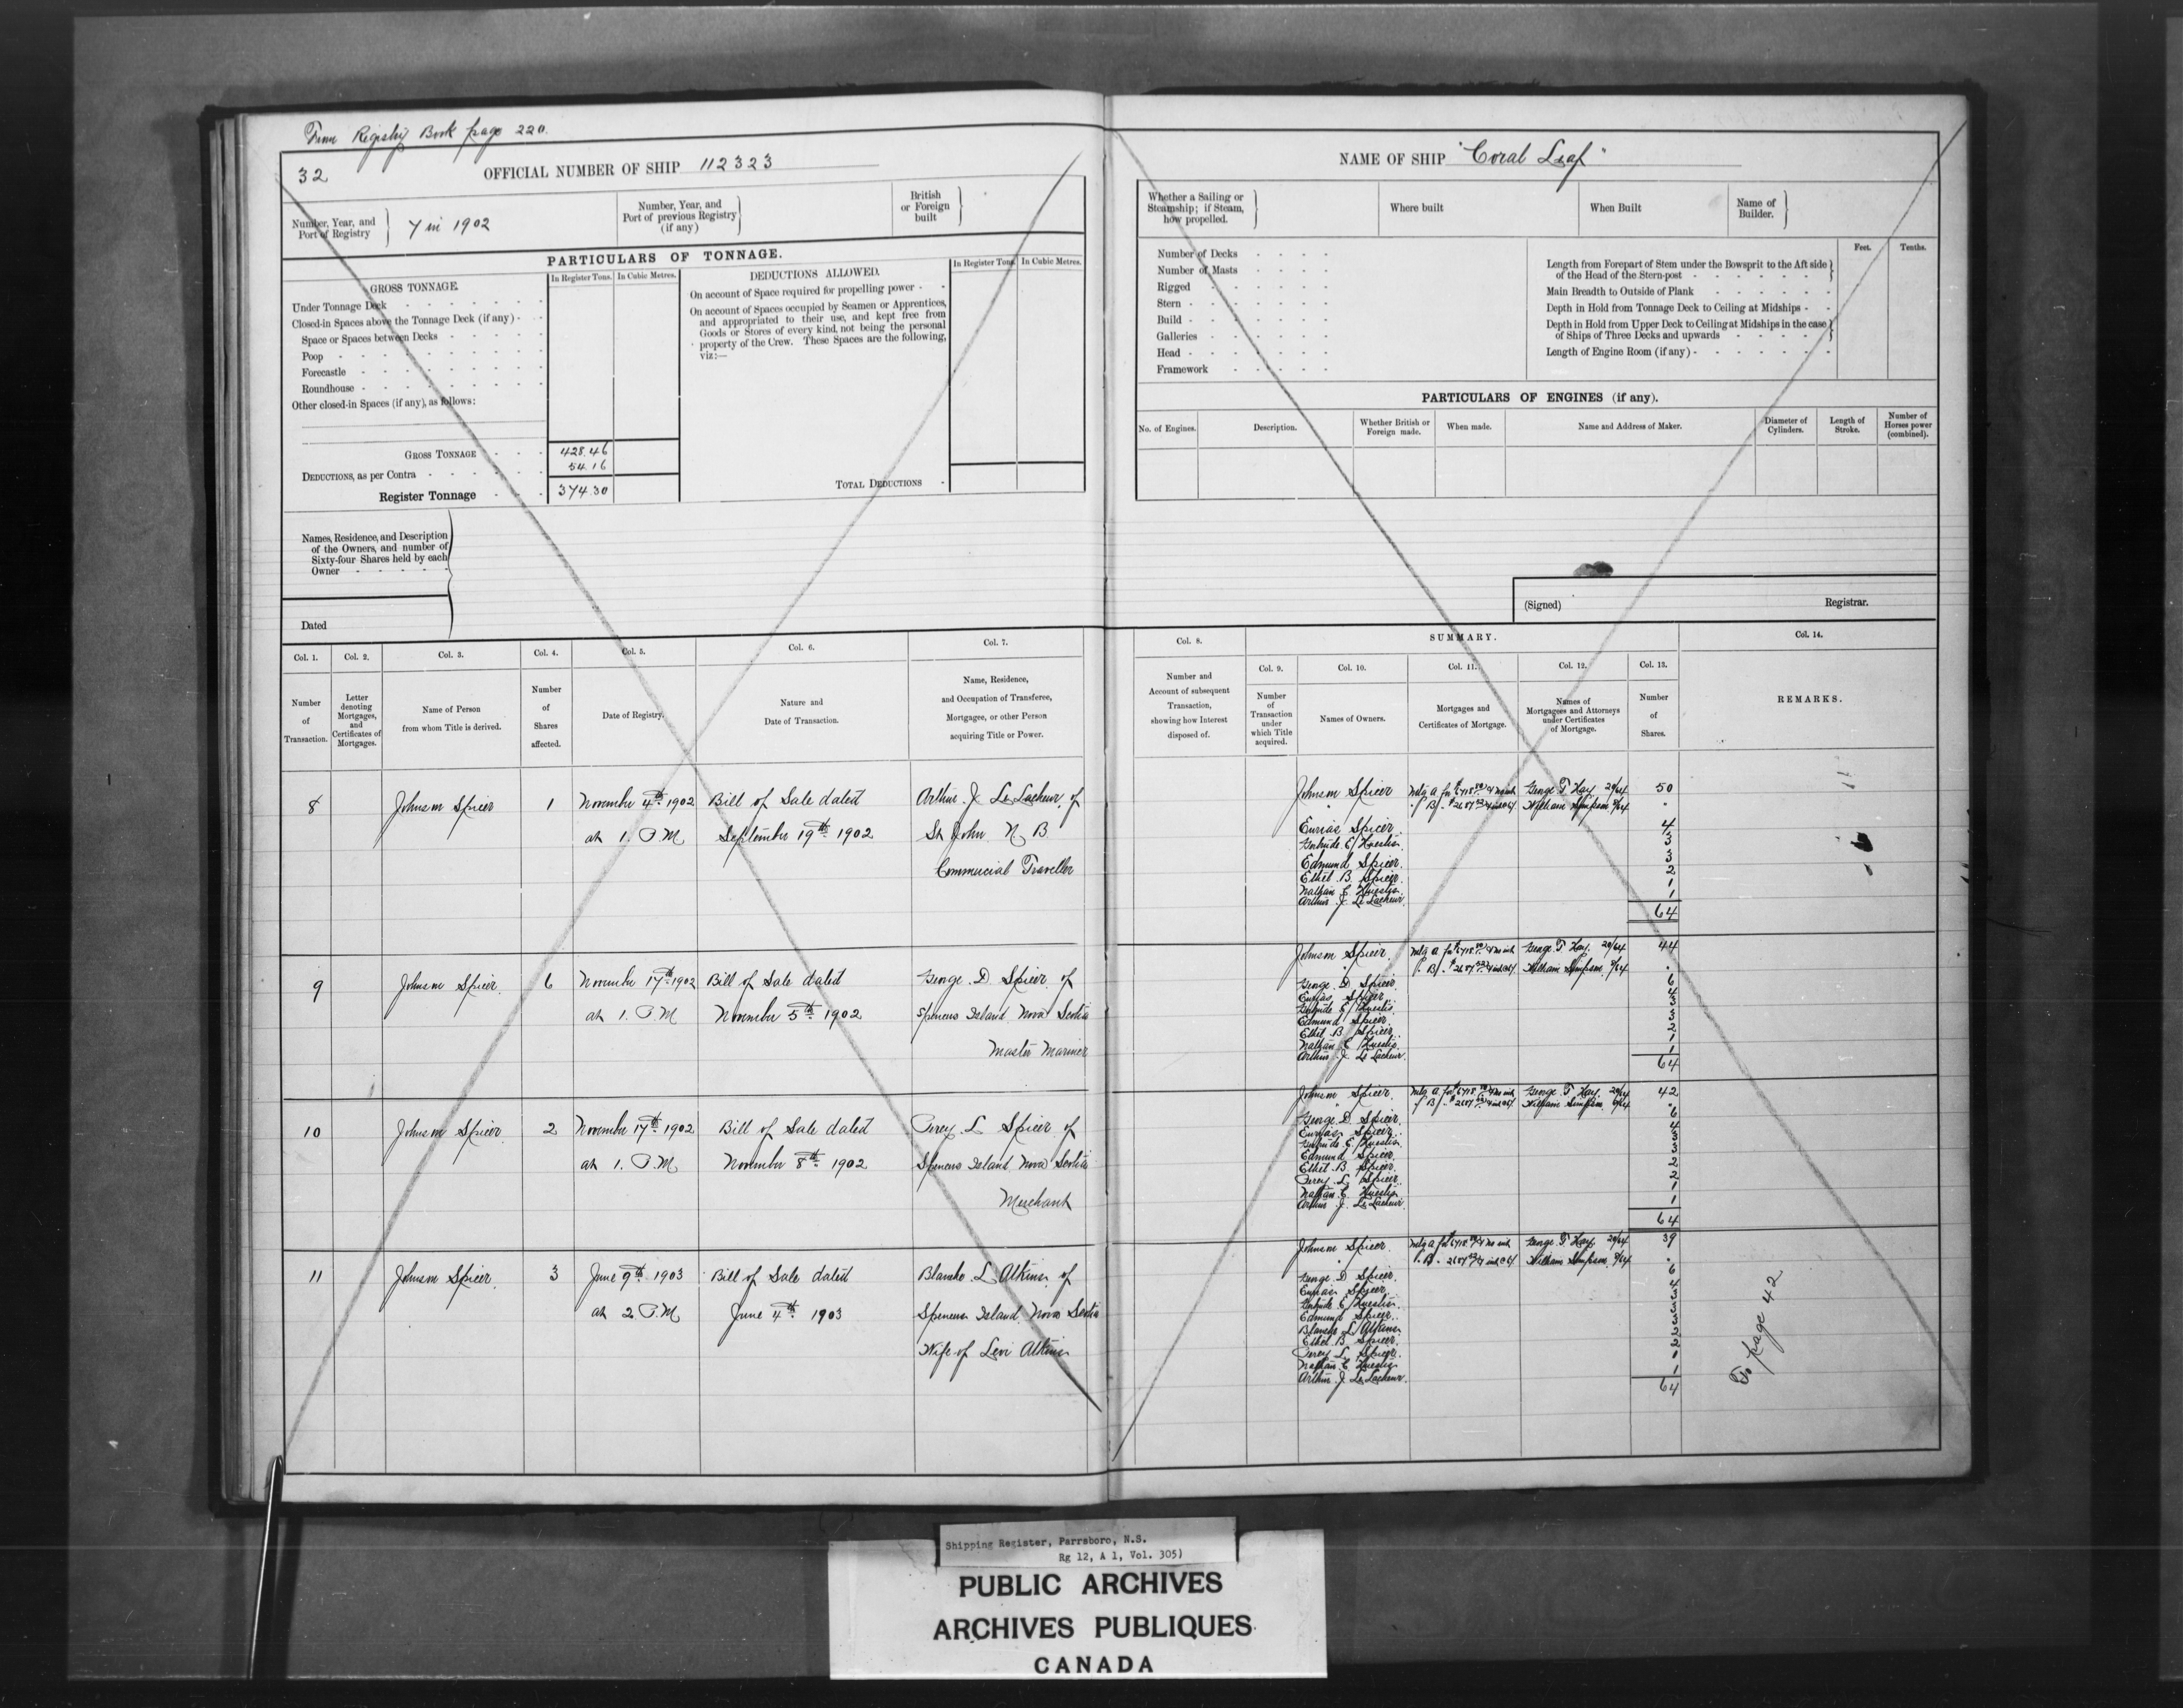 From Registry Book page 220.
32
OFFICIAL NUMBER OF SHIP 112323
Number, Year, and
Port of Registry
7 in 1902
Number, Year, and
Port of previous Registry
(if any)
British
or Foreign
built
PARTICULARS OF TONNAGE.
GROSS TONNAGE.
In Register Tons.
In Cubic Metres.
Under Tonnage Deck
Closed-in Spaces above the Tonnage Deck (if any)
Space or Spaces between Decks
Poop
Forecastle
Roundhouse
Other closed-in Spaces (if any), as follows:
GROSS TONNAGE 428.46
DEDUCTIONS, as per Contra 54.16
Register Tonnage 374.30
DEDUCTIONS ALLOWED.
In Register Tons.
In Cubic Metres.
On account of Space required for propelling power
On account of Spaces occupied by Seamen or Apprentices,
and appropriated to their use, and kept free from
Goods or Stores of every kind, not being the personal
property of the Crew. These Spaces are the following,
viz:—
TOTAL DEDUCTIONS
Names, Residence, and Description
of the Owners, and number of
Sixty-four Shares held by each
Owner
Dated
NAME OF SHIP "Coral Leaf"
Whether a Sailing or
Steamship; if Steam,
how propelled.
Where built
When Built
Name of
Builder.
Number of Decks
Number of Masts
Rigged
Stern
Build
Galleries
Head
Framework
Feet.
Tenths.
Length from Forepart of Stem under the Bowsprit to the Aft side
of the Head of the Stern-post
Main Breadth to Outside of Plank
Depth in Hold from Tonnage Deck to Ceiling at Midships
Depth in Hold from Upper Deck to Ceiling at Midships in the case
of Ships of Three Decks and upwards
Length of Engine Room (if any)
PARTICULARS OF ENGINES (if any).
No. of Engines.
Description.
Whether British or
Foreign made.
When made.
Name and Address of Maker.
Diameter of
Cylinders.
Length of
Stroke.
Number of
Horses power
(combined).
(Signed)
Registrar.
Col. 1.
Number
of
Transaction.
Col. 2.
Letter
denoting
Mortgages,
and
Certificates of
Mortgages.
Col. 3.
Name of Person
from whom Title is derived.
Col. 4.
Number
of
Shares
affected.
Col. 5.
Date of Registry.
Col. 6.
Nature and
Date of Transaction.
Col. 7.
Name, Residence,
and Occupation of Transferee,
Mortgagee, or other Person
acquiring Title or Power.
Col. 8.
Number and
Account of subsequent
Transaction,
showing how Interest
disposed of.
SUMMARY.
Col. 9.
Number
of
Transaction
under
which Title
acquired.
Col. 10.
Names of Owners.
Col. 11.
Mortgages and
Certificates of Mortgage.
Col. 12.
Names of
Mortgagees and Attorneys
under Certificates
of Mortgage.
Col. 13.
Number
of
Shares.
Col. 14.
REMARKS.
8 Johnson Spicer 1 November 4th 1902 Bill of Sale dated Arthur J. Le Lacheur, of
at 1. P.M September 19th 1902 St John N B
Commercial Traveller
Johnson Spicer George T. Kay 50
William Simpson
Eurias Spicer 4
Gertrude E. Huestis 3
Edmund Spicer 3
Ethel B. Spicer 2
Nathan C Huestis 1
Arthur J. Le Lacheur 1
64
9 Johnson Spicer 6 November 17th 1902 Bill of Sale dated George D. Spicer of
at 1. P.M November 5th 1902 Spencers Island Nova Scotia
Master Mariner
Johnson Spicer George T. Kay 44
William Simpson
George D. Spicer 6
Eurias Spicer 4
Gertrude E. Huestis 3
Edmund Spicer 3
Ethel B. Spicer 2
Nathan C Huestis 1
Arthur J. Le Lacheur 1
64
10 Johnson Spicer 2 November 17th 1902 Bill of Sale dated Percy L Spicer of
at 1. P.M November 8th 1902 Spencers Island Nova Scotia
Merchant
Johnson Spicer George T Kay 42
William Simpson
George D. Spicer 6
Eurias Spicer 4
Gertrude E. Huestis 3
Edmund Spicer 3
Ethel B Spicer 2
Percy L. Spicer 2
Nathan C. Huestis 1
Arthur J. Le Lacheur 1
64
11 Johnson Spicer 3 June 9th 1903 Bill of Sale dated Blanche L Atkins of
at 2. P.M June 4th 1903 Spencers Island Nova Scotia
Wife of Levi Atkins
Johnson Spicer George T. Kay 39
William Simpson
George D Spicer 6
Eurias Spicer 4
Gertrude E Huestis 3
Edmund Spicer 3
Blanche L. Atkins 3
Ethel B Spicer 2
Percy L. Spicer 2
Nathan C Huestis 1
Arthur J. Le Lacheur 1
64
To page 42
Shipping Register, Parrsboro, N.S.
Rg 12, A 1, Vol. 305)
PUBLIC ARCHIVES
ARCHIVES PUBLIQUES
CANADA